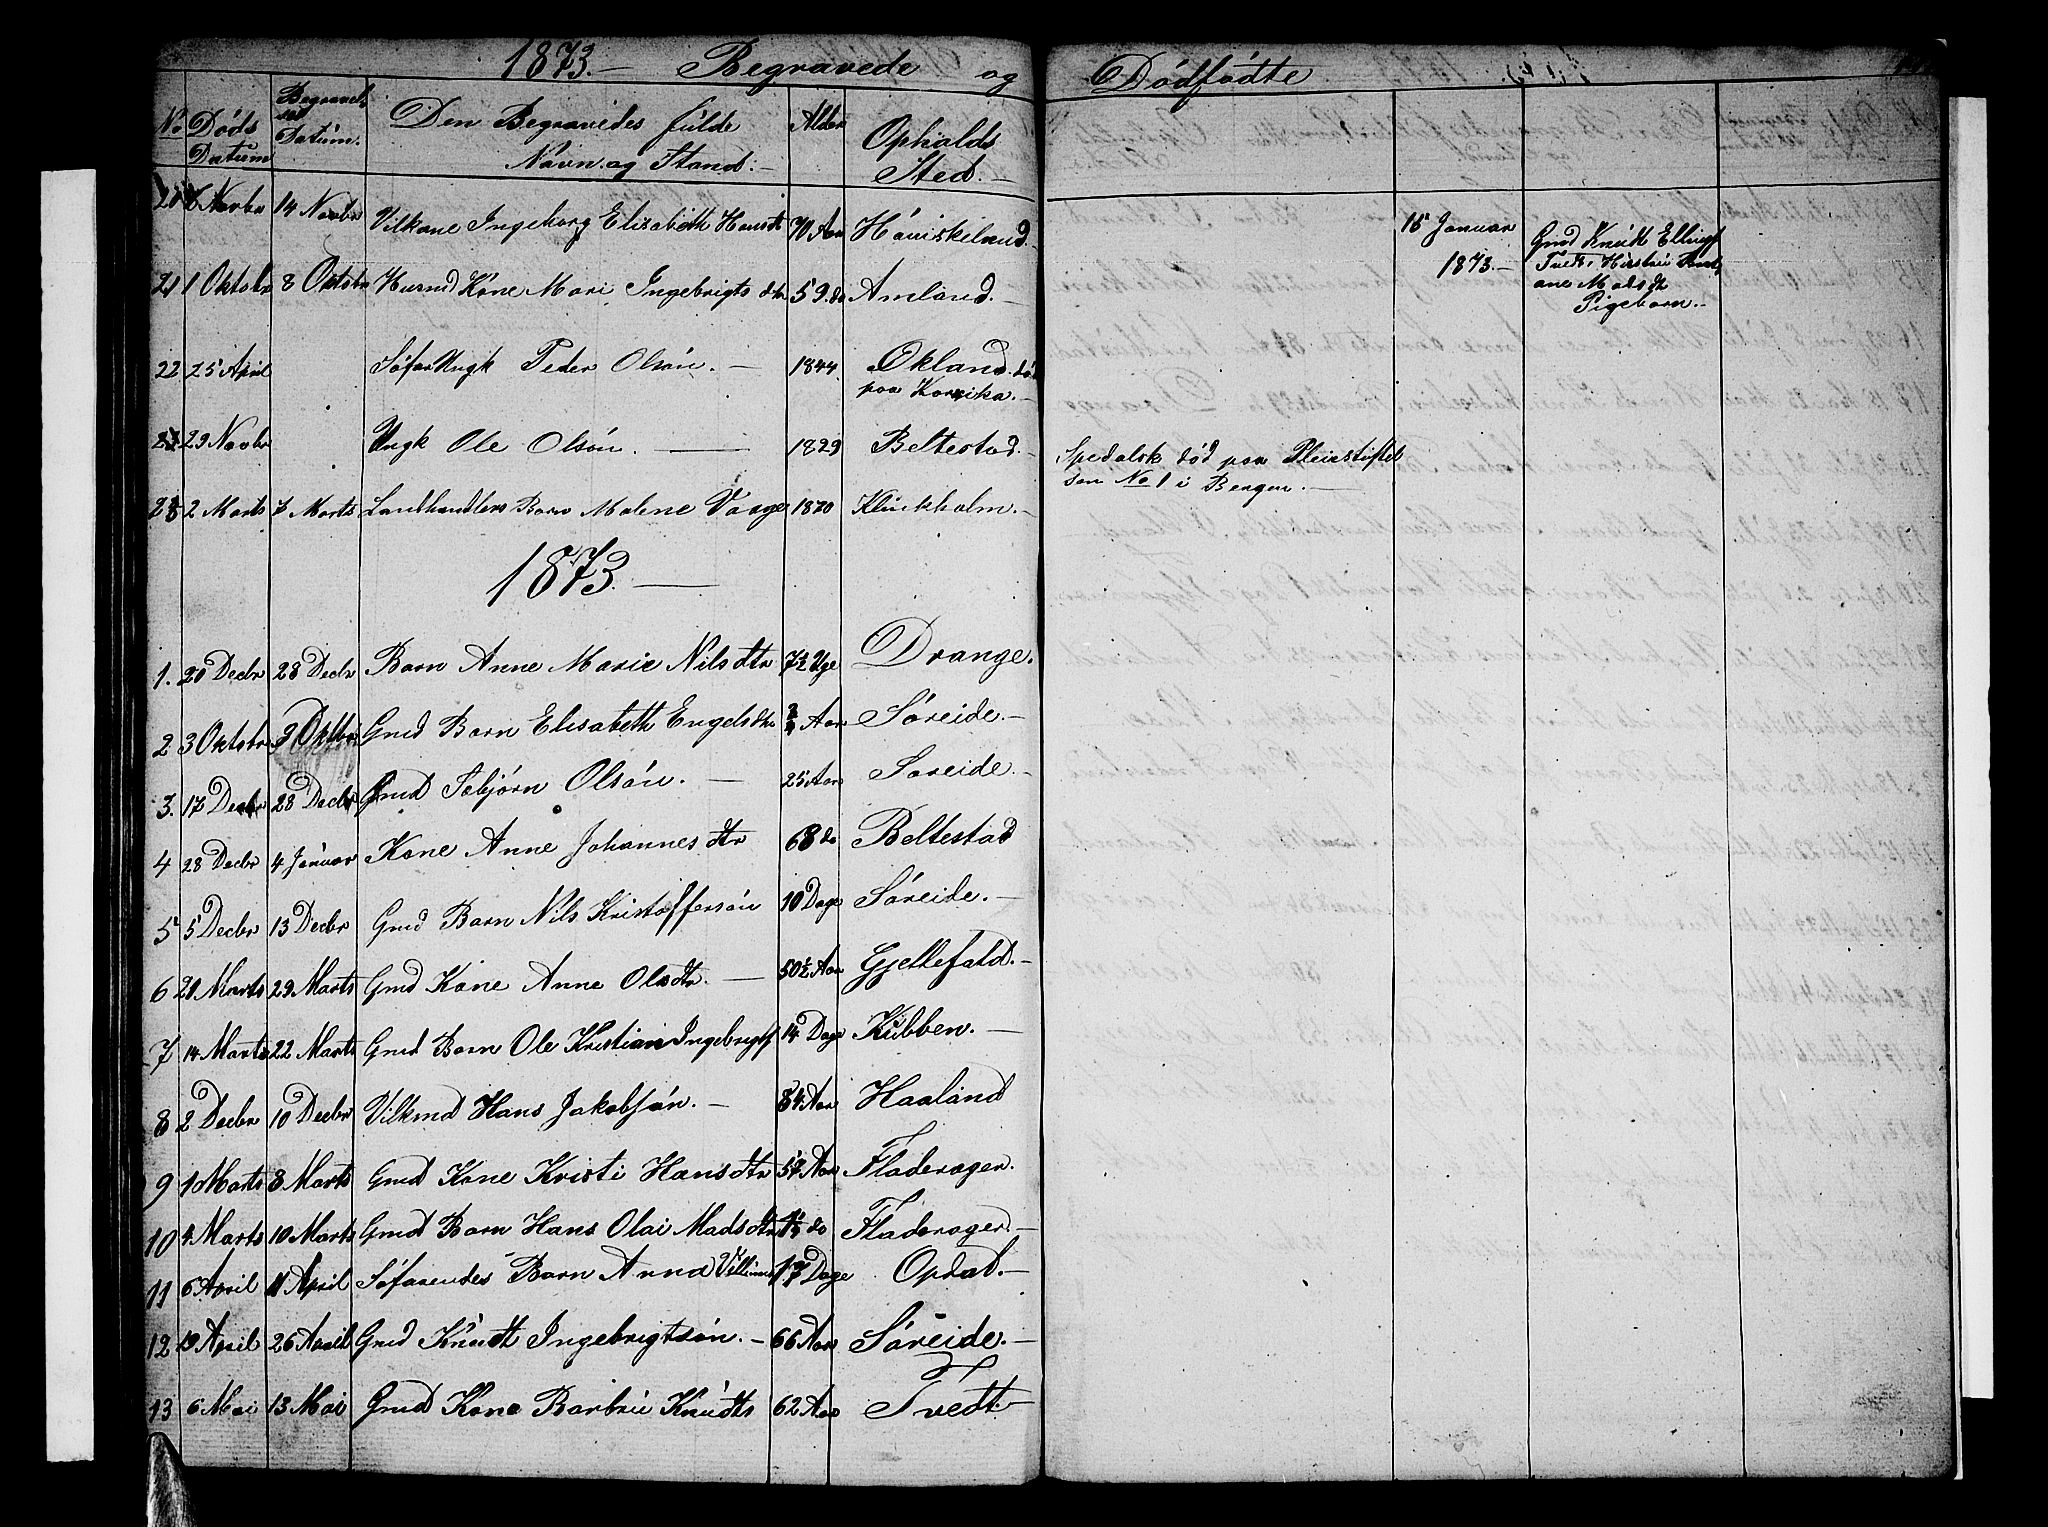 1873. — Begravede og Dödfödte
No Döds Datum
Begravel ses Datum.
Den Begravedes fulde Navn og Stand. —
Alder
Opholds Sted. —
14 Novbr Vilkone Ingeborg Elisabeth Hansdtr 70 Aar
21 1 Oktobr 8 Oktobr Husmd Kone Mari Ingebrigtsdtr 59 do Amland. —
22 25 April Ungk Peder Olsön. — 1844 Økland död paa Korsika. —
23 29 Novbr Ungk Ole Olsön. — 1829 Beltestad. — Spedalsk död paa Pleiestiftel sen No 1 i Bergen. —
2 Marts 7 Marts Landhandlers Barn Malene Vaage 1870 Klückholm. —
15 Januar 1873. —
Gmd Knudt Ellingf
Tvedt,
ane Madsdt
Pigebarn. —
1873. —
1. 20 Decbr 28 Decbr Barn Anne Marie Nilsdtr 7½ Uge Drange.
2 3 Oktobr Gmd Barn Elisabeth Engelsdtr Aar Söreide. —
3. 17 Decbr 28 Decbr Gmd Olsön. — 25 Aar Söreide. —
4 28 Decbr 4 Januar Kone Anne Johannesdtr 68 do Beltestad
5 5 Decbr 13 Decbr Gmd Barn Nils Kristoffersön 10 Dage Söreide. —
6 21 Marts 29 Marts Gmd Kone Anne Olsdtr. — 50½ Aar Gjellefald. —
7 14 Marts 22 Marts Gmd Barn Ole Kristian Ingebrigtf 14 Dage Kubben. —
8 2 Decbr 10 Decbr Vilkmd Hans Jakobsön. — 84 Aar Haaland
9 1 Marts 8 Marts Gmd Kone Kristi Hansdtr Aar Fladerager.
10 4 Marts 10 Marts Gmd Barn Hans Olai Madsdtr do Fladerager. —
11 6 April 11 April Söfarendes Barn Anna Dage Opdal. —
12 19 April 26 April Gmd Knudt Ingebrigtsön. — 66 Aar Söreide. —
13 6 Mai 13 Mai Gmd Kone Barbru Knudts 62 Aar Tvedt —